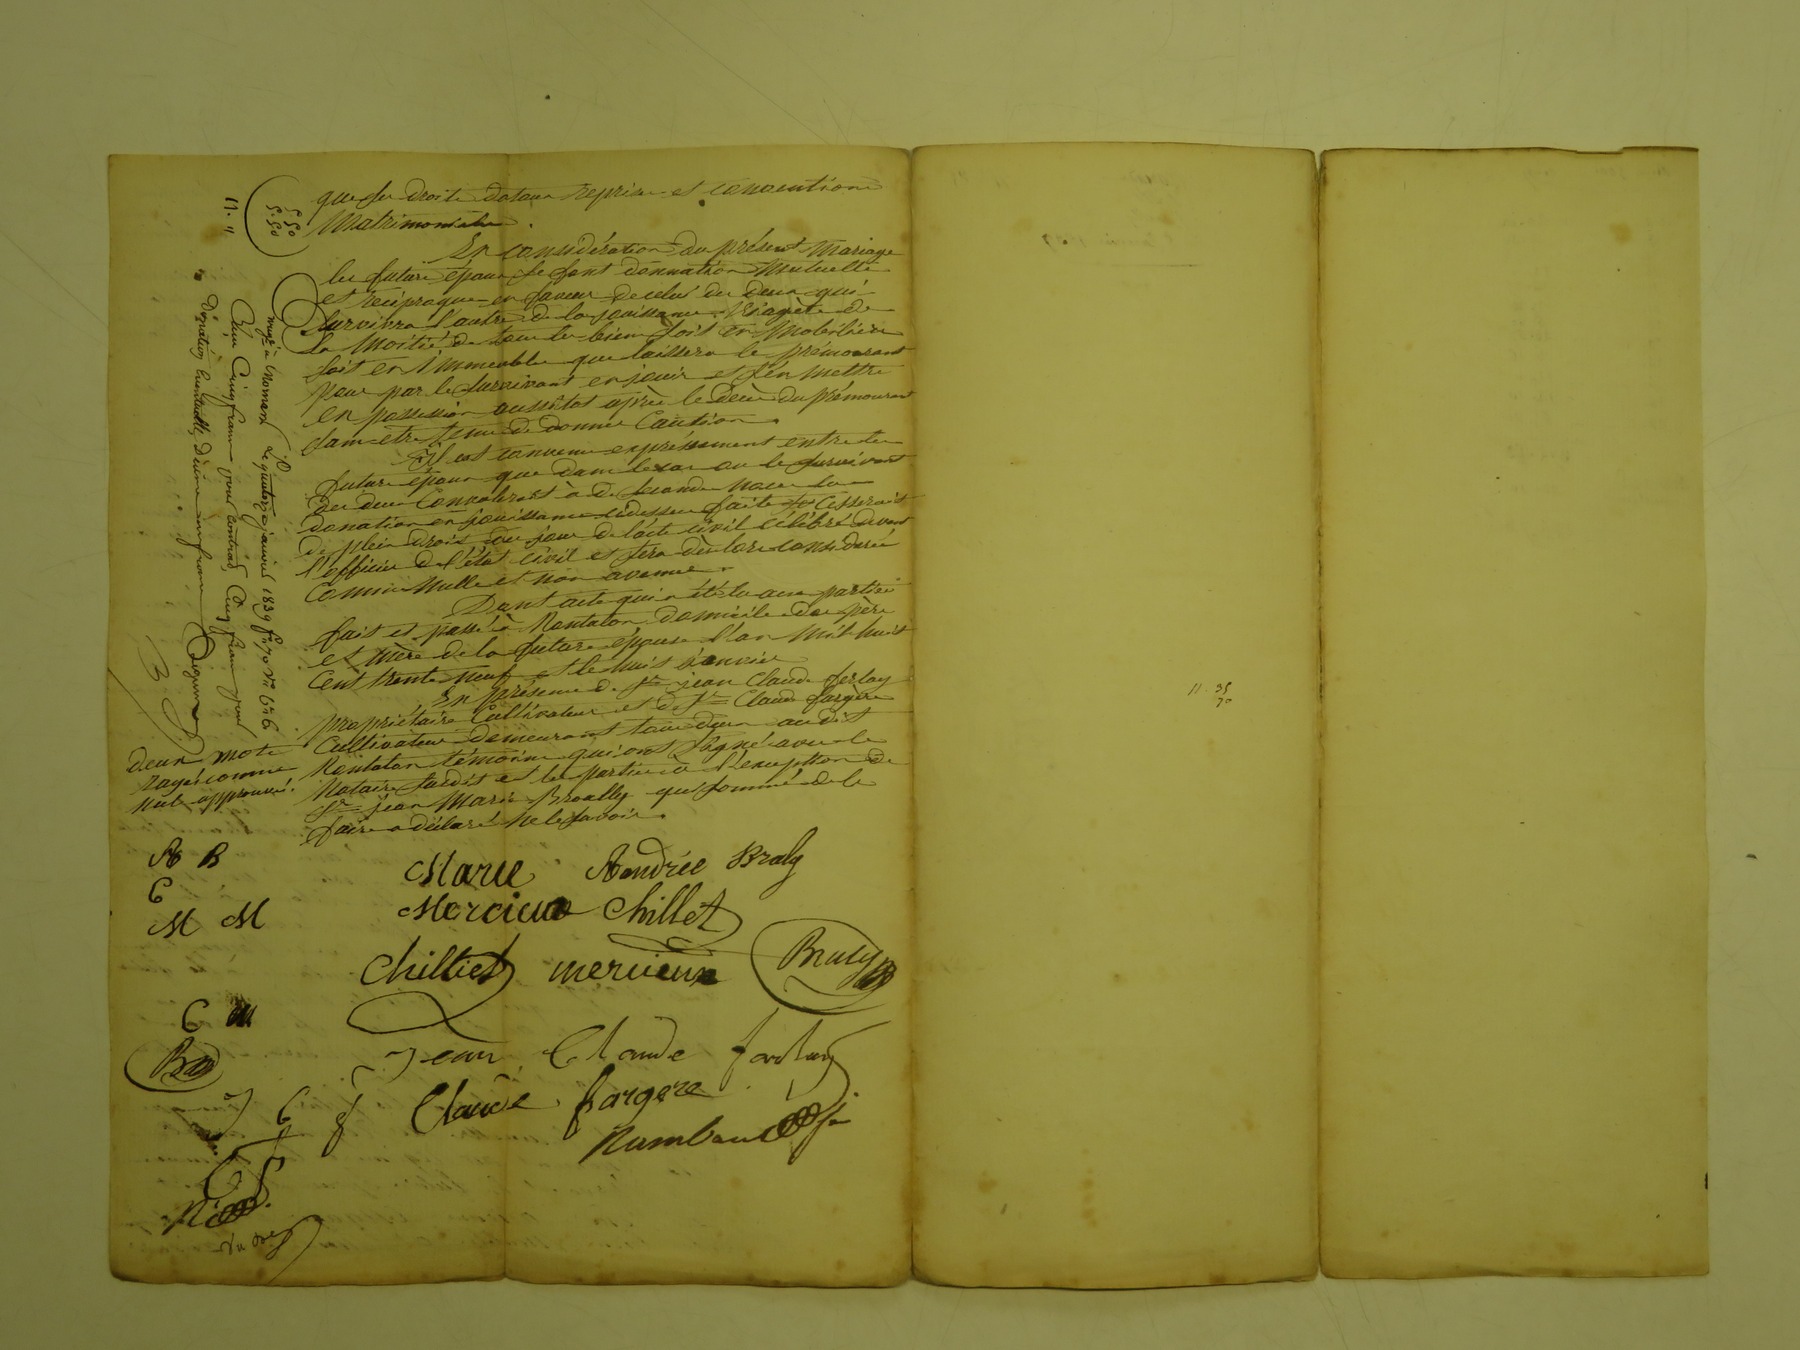 que ses droits dotaux reprises et conventions
Matrimoniales.
En considération du présent Mariage
les futurs époux se font donnation Mutuelle
et réciproque en faveur de celui des deux qui
survivra l'autre de la jouissance Viagère de
la Moitié de tous les biens soit en Mobilière
soit en Immeubles que laissera le prémourant
pour par le survivant en jouir et s'en mettre
en possession aussitôt après le décès du prémourant
sans etre tenu de donner Caution.
Il est convenu expréssement entre les
futurs époux que dans le cas ou le survivant
des deux Convolerait à de secondes noces la
donation en jouissance cidessus faite cesserait
de plein droit du jour de l'acte civil célébré devant
l'officier de l'état civil et sera dès lors considerée
Comme Nulle et non avenue.
Dont acte qui a été lu aux parties
fait et passé à Rontalon domicile des père
et mère de la future épouse l'an Mil huit
Cent trente Neuf et le huit Janvier
En présence de Sr jean Claude ferlay
propriétaire Cultivateur et de Sr Claude fargere
Cultivateur demeurant tous deux au dit
Rontalon témoins qui ont signé avec le
Notaire susdit et les parties à l'exception de
Sr jean Marie Broally qui sommé de le
faire a déclaré Ne le savoir.
deux mots
rayés comme
nuls approuvés.
5.50
5.50
11. "
Le quatorze janvier 1839 fo 70 Vo C 6
Reçu Cinq francs pour contrat, Cinq francs pour
Donation Eventuelle, Dixième un franc
A B
C
M M
Marie Andrée Braly
Mercieux Chillet
Chilliet mercieux Braly
C M
Jean Claude ferlay
J C f
Claude fargere
11 35
70